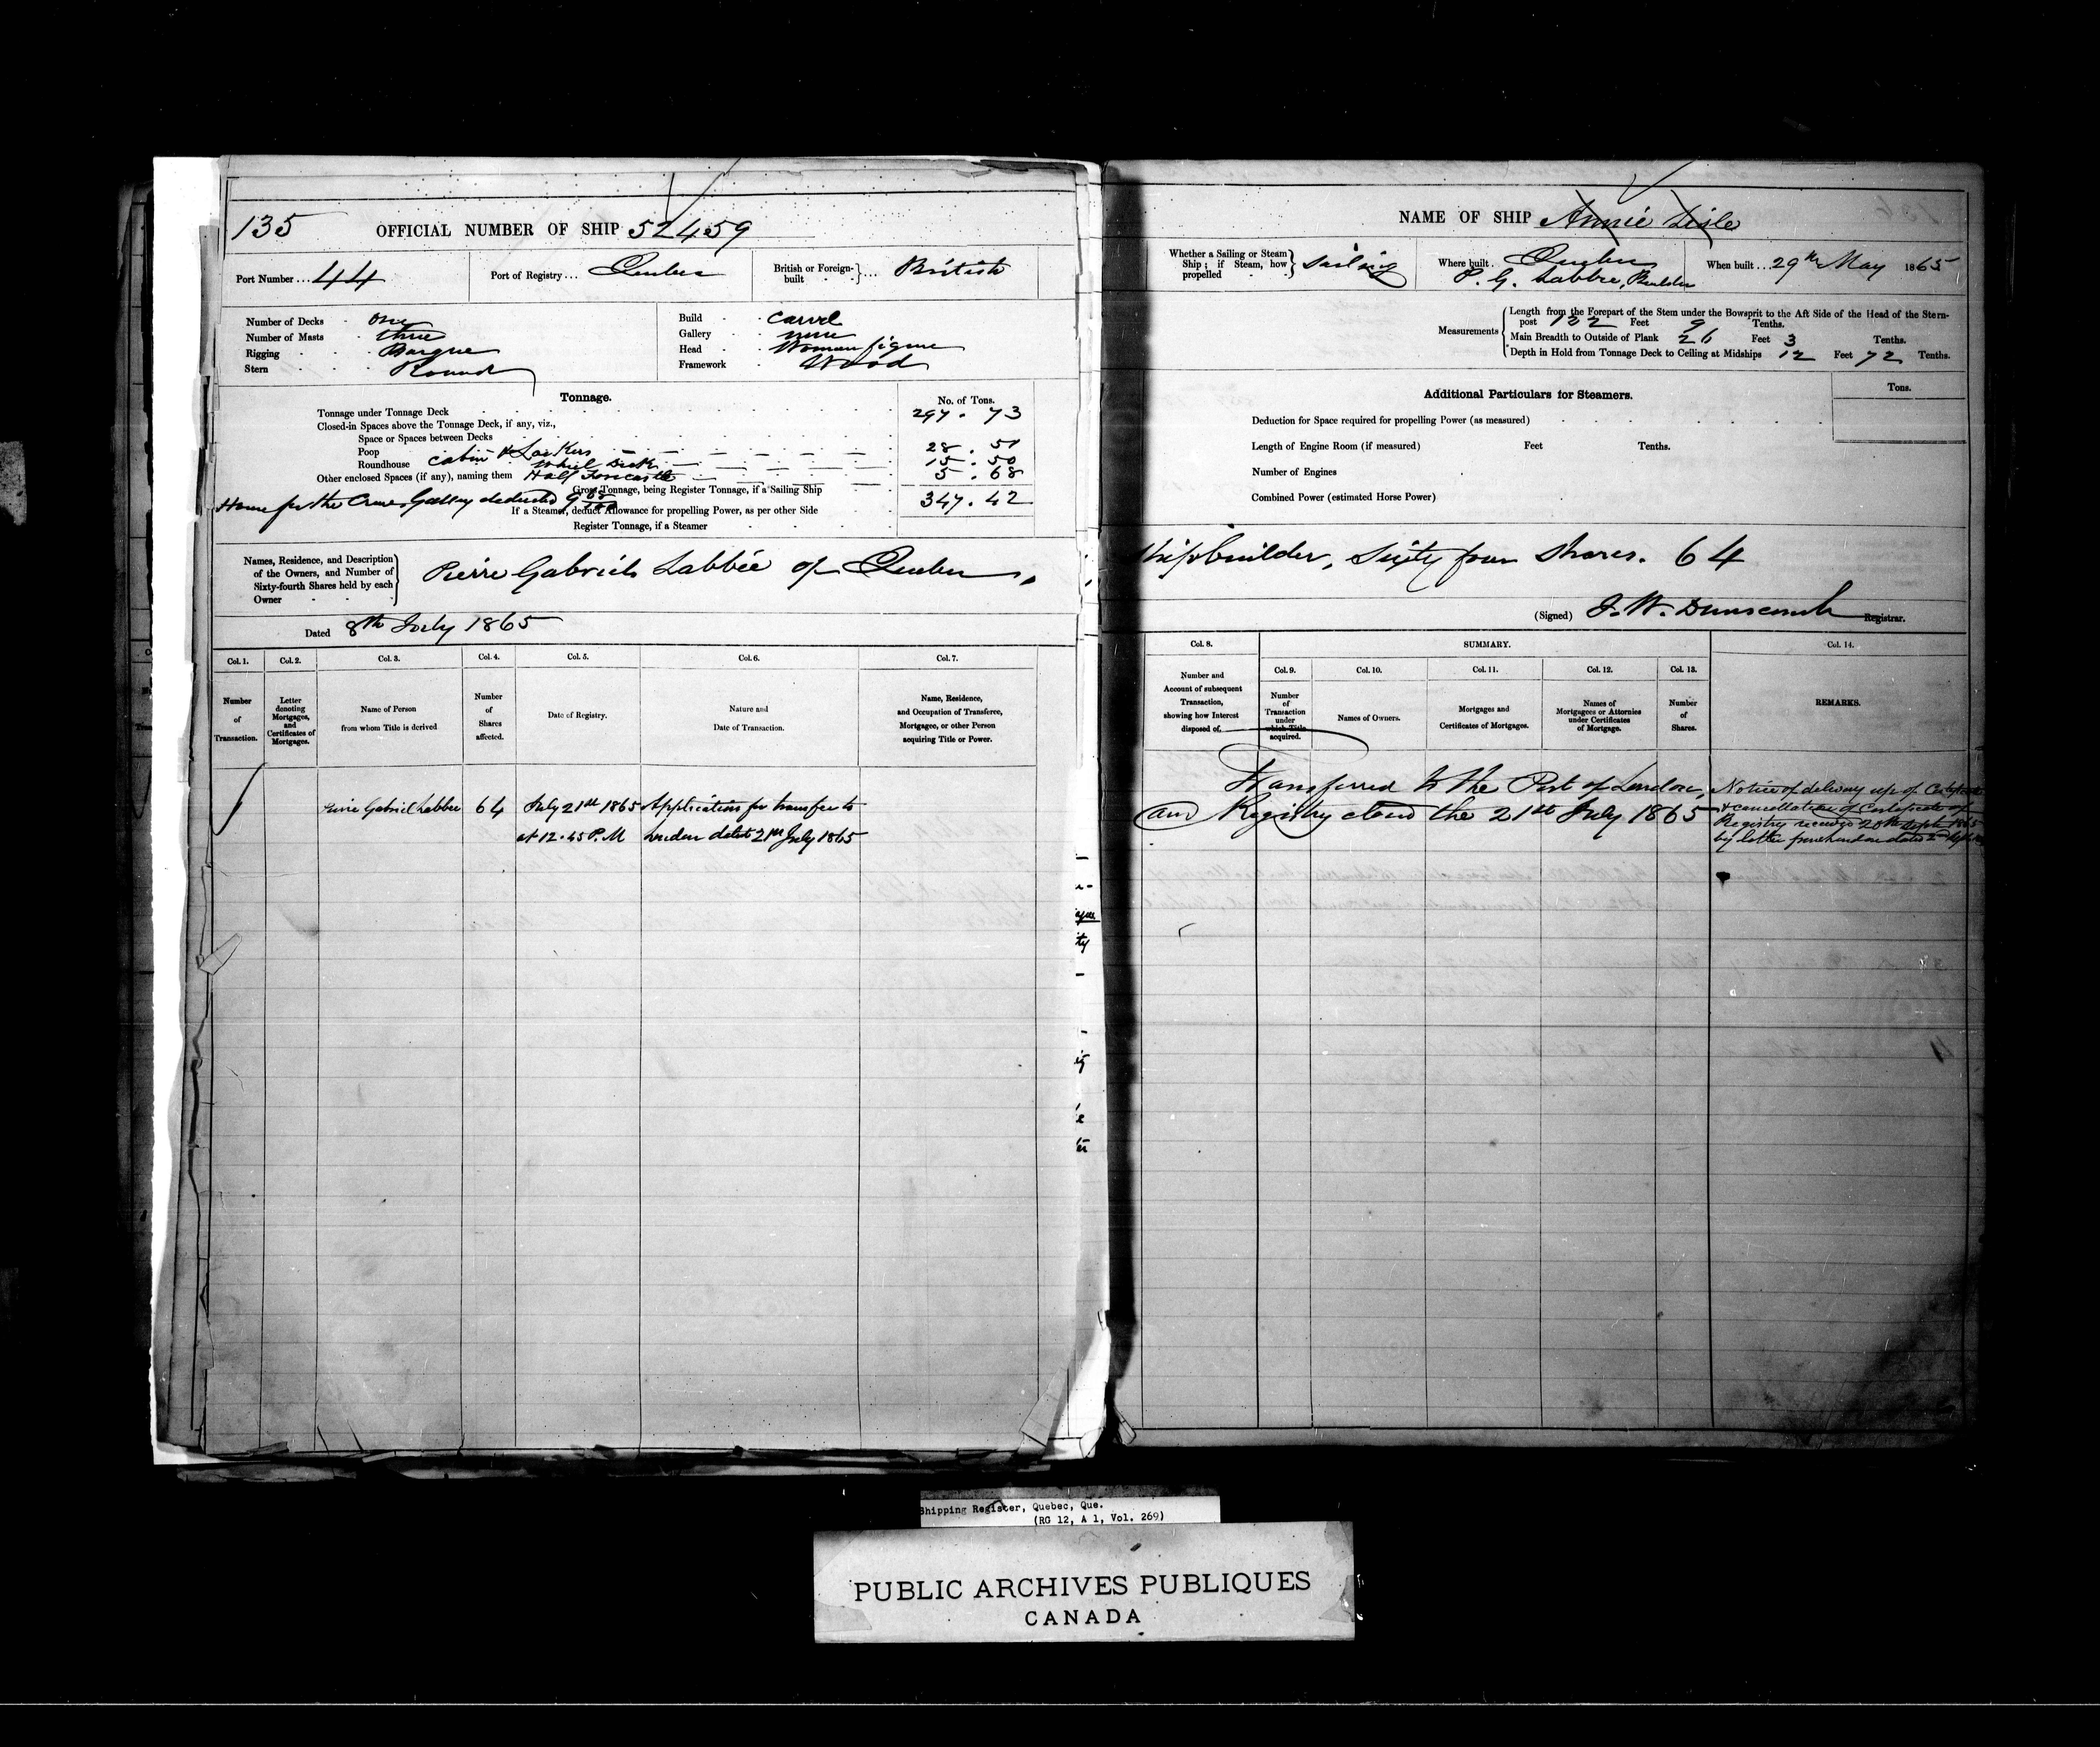 135 OFFICIAL NUMBER OF SHIP 52459
Port Number ... 44 Port of Registry ... Quebec British or Foreign-built ... British
Number of Decks One
Number of Masts three
Rigging Barque
Stern Round
Build Carvel
Gallery none
Head Woman figure
Framework Wood
Tonnage. No. of Tons.
Tonnage under Tonnage Deck 297.73
Closed-in Spaces above the Tonnage Deck, if any, viz.,
Space or Spaces between Decks
Poop Cabin & Lockers 28.51
Roundhouse Wheel 15.50
Other enclosed Spaces (if any), naming them Half Forecastle 5.68
Gross Tonnage, being Register Tonnage, if a Sailing Ship 347.42
House for the Crew & Galley deducted 9
If a Steamer, deduct Allowance for propelling Power, as per other Side
Register Tonnage, if a Steamer
Names, Residence, and Description of the Owners, and Number of Sixty-fourth Shares held by each Owner
Pierre Gabriel Labbée of Quebec,
Dated 8th July 1865
Col. 1. Col. 2. Col. 3. Col. 4. Col. 5. Col. 6. Col. 7.
Number of Transaction.
Letter denoting Mortgages, and Certificates of Mortgages.
Name of Person from whom Title is derived
Number of Shares affected.
Date of Registry.
Nature and Date of Transaction.
Name, Residence, and Occupation of Transferee, Mortgagee, or other Person acquiring Title or Power.
Pierre Gabriel Labbee 64 July 21st 1865 Application for transfer to
at 12.45 P.M London dated 21st July 1865
NAME OF SHIP Annie Lisle
Whether a Sailing or Steam Ship; if Steam, how propelled Sailing
Where built Quebec
P. G. Labbee, Builder
When built 29th May 1865
Measurements
Length from the Forepart of the Stem under the Bowsprit to the Aft Side of the Head of the Stern-
post 122 Feet 9 Tenths.
Main Breadth to Outside of Plank 26 Feet 3 Tenths.
Depth in Hold from Tonnage Deck to Ceiling at Midships 12 Feet 72 Tenths.
Additional Particulars for Steamers. Tons.
Deduction for Space required for propelling Power (as measured)
Length of Engine Room (if measured) Feet Tenths.
Number of Engines
Combined Power (estimated Horse Power)
Shipbuilder, Sixty four Shares. 64
(Signed) J. W. Dunscomb Registrar.
Col. 8. SUMMARY. Col. 14.
Col. 9. Col. 10. Col. 11. Col. 12. Col. 13.
Number and Account of subsequent Transaction, showing how Interest disposed of.
Number of Transaction under which Title acquired.
Names of Owners.
Mortgages and Certificates of Mortgages.
Names of Mortgagees or Attornies under Certificates of Mortgage.
Number of Shares.
REMARKS.
Transferred to the Port of London,
and Registry closed the 21st July 1865
Notice of delivery up of Certificate
& cancellation of Certificate of
Registry received 20th Sept 1865
by letter from London dated 2nd
Shipping Register, Quebec, Que.
(RG 12, A 1, Vol. 269)
PUBLIC ARCHIVES PUBLIQUES
CANADA